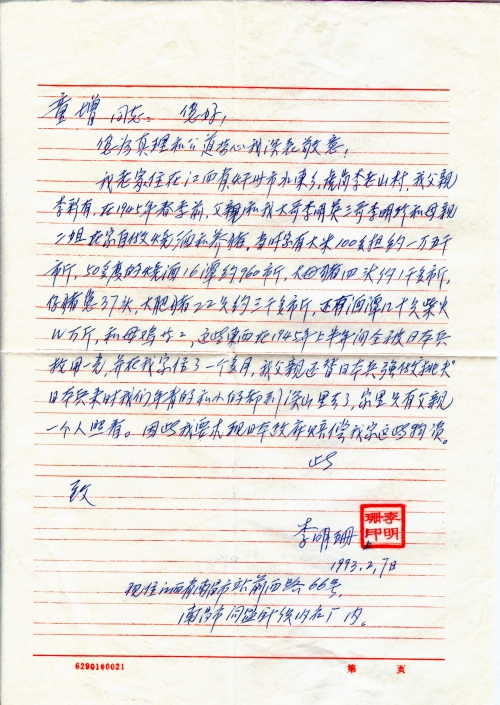 童增同志：您好，
您为真理和公道操心我深表敬意！
我老家住在江西省 市水东乡虎岗李老山村，我父亲
李 有，在1945年春季前，父亲和我大哥李明 三哥李明珍和母亲
二姐在家自做烧酒和养猪，当时家有大米100多担约一万五千
市斤，50多度的烧酒16潭约960市斤，大母猪四头约1千多市斤，
仔猪崽37头，大肥猪22头约三千多市斤，还有酒潭几十只柴火
万斤，和母鸡 ，这些东西在1945年上半年间全被日本兵
救用一光，并在我家住了一个多月，我父亲还替日本兵强做挑夫
日本兵来时我们年青的和小的都到深山里去了，家里只有父亲
一个人照看。因此我要求现日本政府赔偿我家这些物资。
此
致
李明珊
李明珊印
1993.2.7日
现住江西省南昌市站前西路66号，
南昌市 针织内衣厂内。
6290160021
第 页